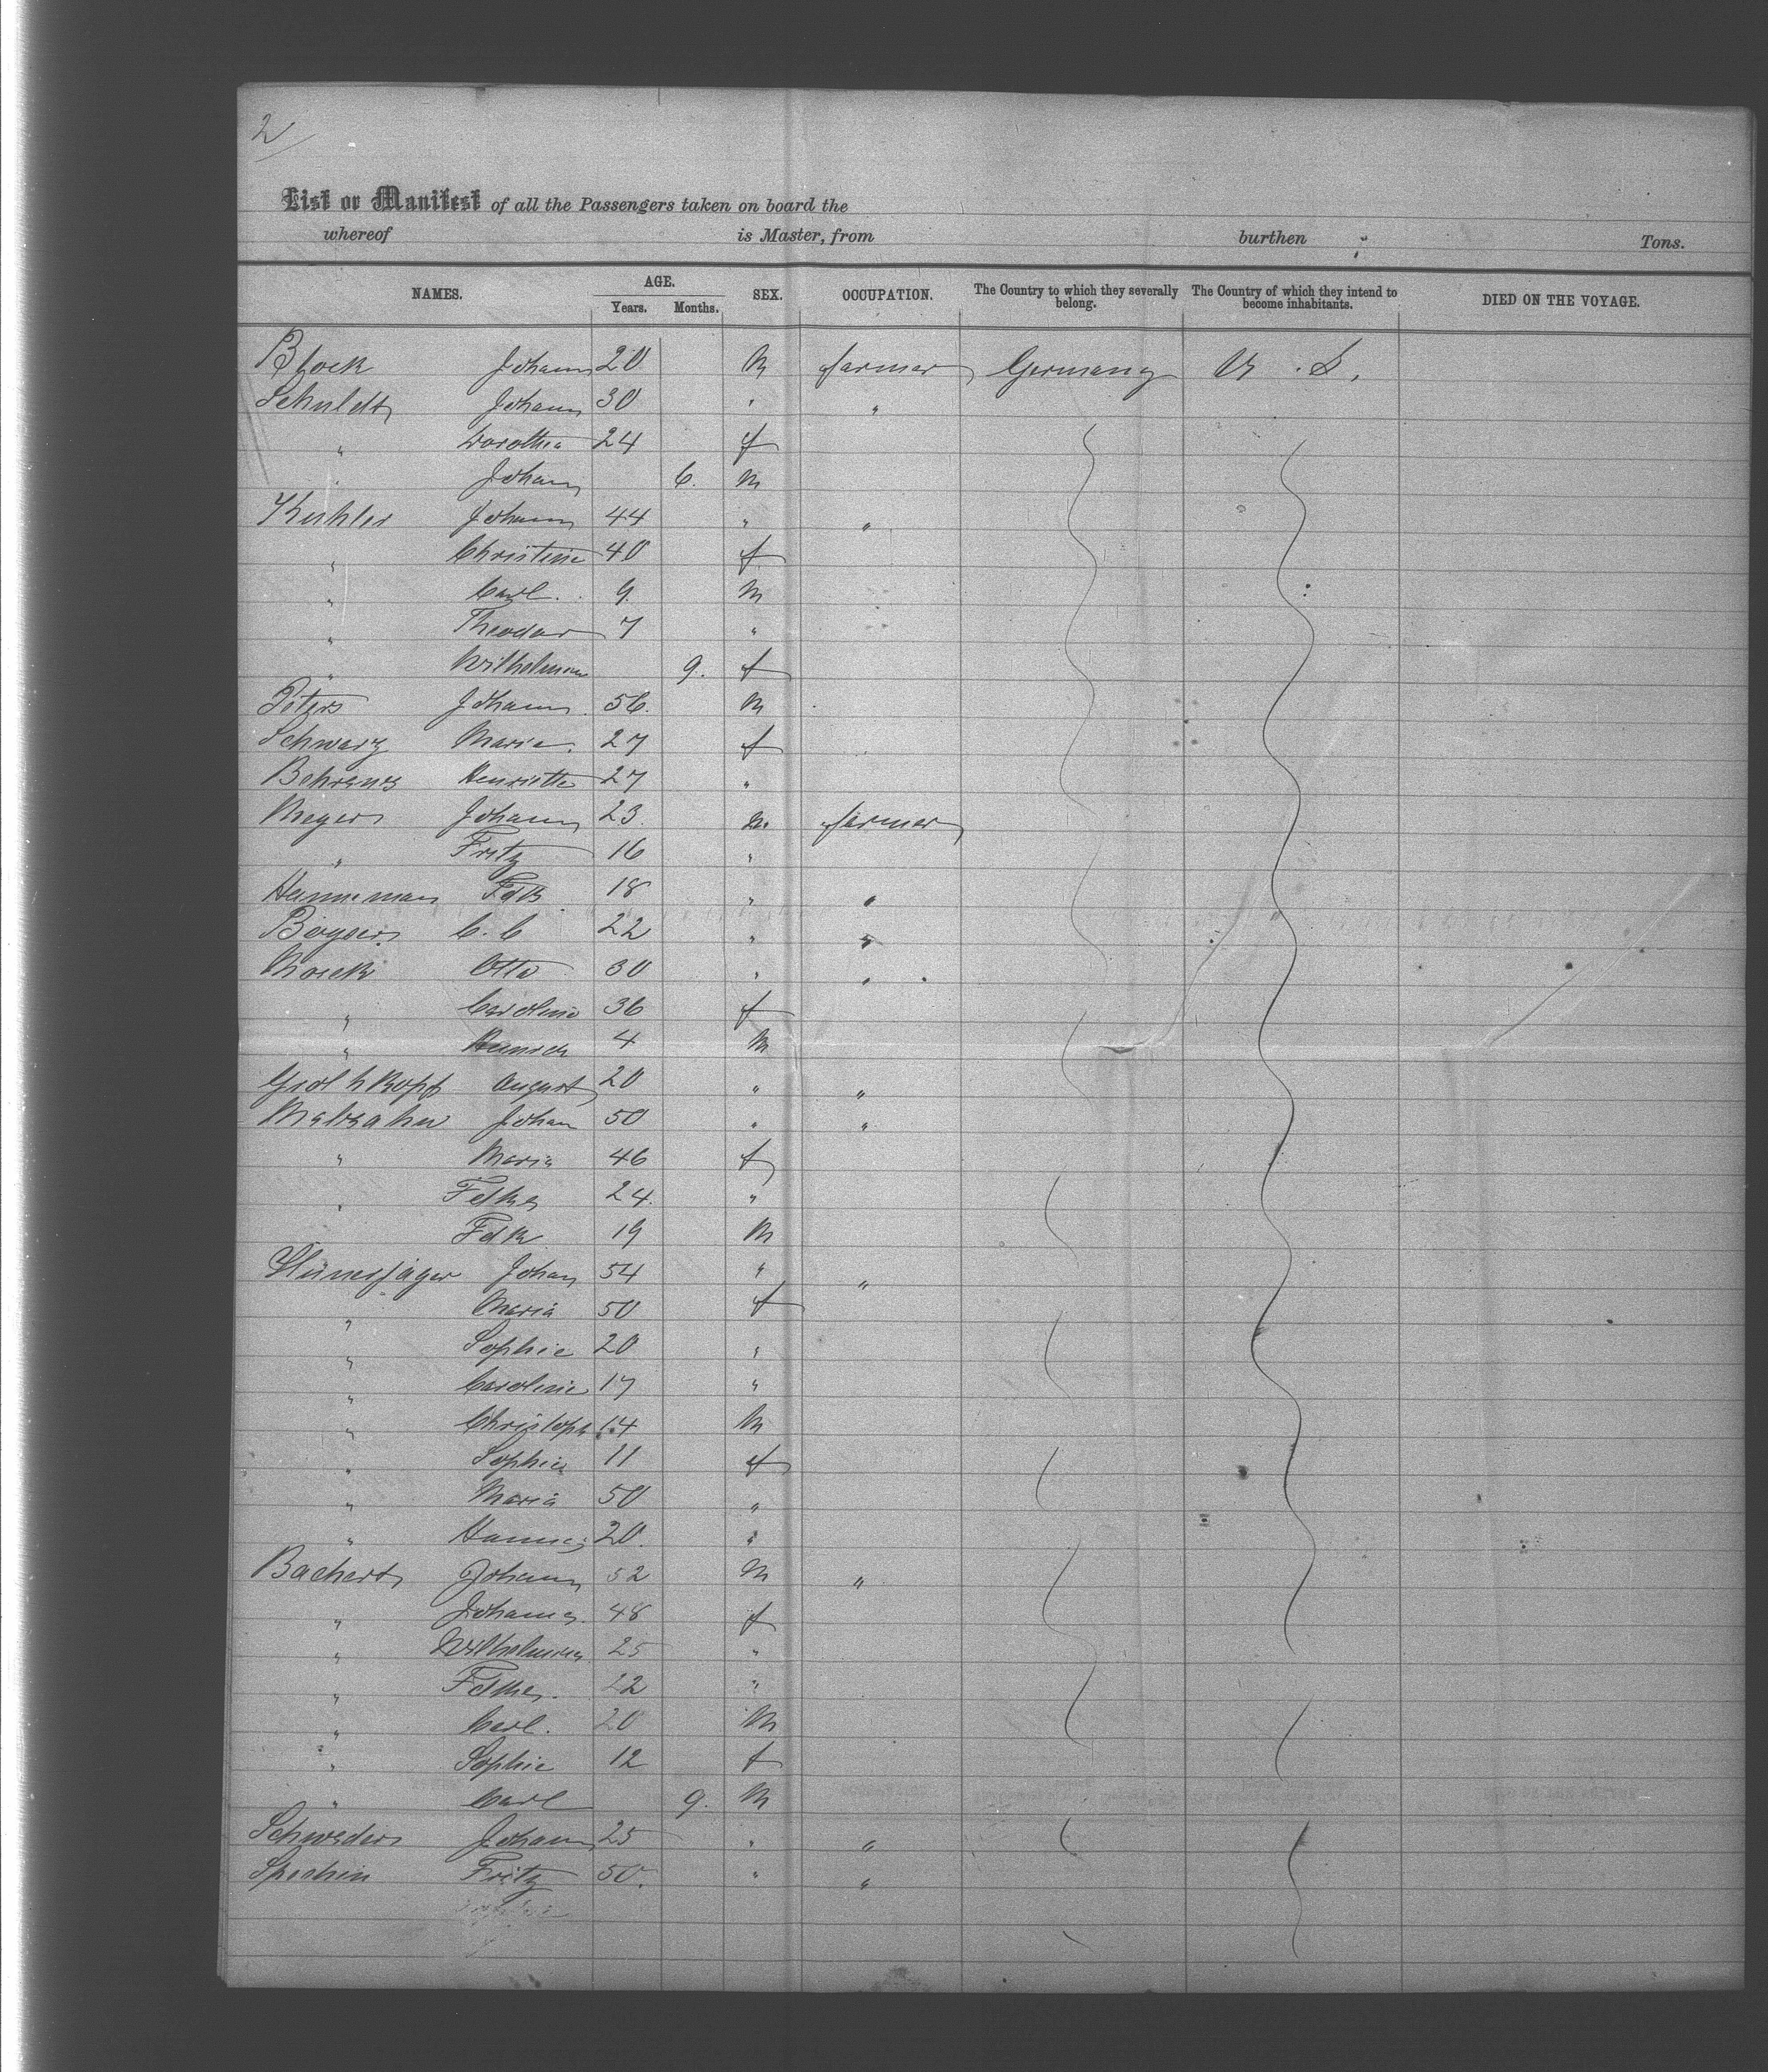 2
List or Manifest of all the Passengers taken on board the
whereof is Master, from burthen Tons.
NAMES. AGE. Years. Months. SEX. OCCUPATION. The Country to which they severally belong. The Country of which they intend to become inhabitants. DIED ON THE VOYAGE.
Block Johann 20 M farmer Germany U.S.
Schuldt Johann 30 " "
" Dorothea 24 f
" Johann 6. M
Kuhler Johann 44 " "
" Christine 40 f
" Carl. 9. M
" Theodor 7 "
" Wilhelmine 9. f
Peters Johann 56. M
Schwarz Maria. 27 f
Behrens Henriette 27 "
Meyer Johann 23. M. farmer
" Fritz 16 "
Hanneman Fdk 18 " "
Boysen C. C 22 " "
Otto 30 " "
" Caroline 36 f
" 4 M
Grothkopf August 20 " "
Maltzahn Johan 50 " "
" Maria 46 f
" Fdke 24. "
Fdk 19 M
Hünerjäger Johan 54 " "
" Maria 50 f
" Sophie 20 "
" Caroline 17 "
" Christoph 14 M
" Sophie 11 f
" Maria 50 "
" Hanne 20. "
Bachert Johann 52 M "
" Johanna 48 f
" Wilhelmina 25 "
" Fdke. 22 "
" Carl. 20 M
" Sophie 12 f
" Carl 9. M
Schweder Johann 25 " "
Fritz 50. " "